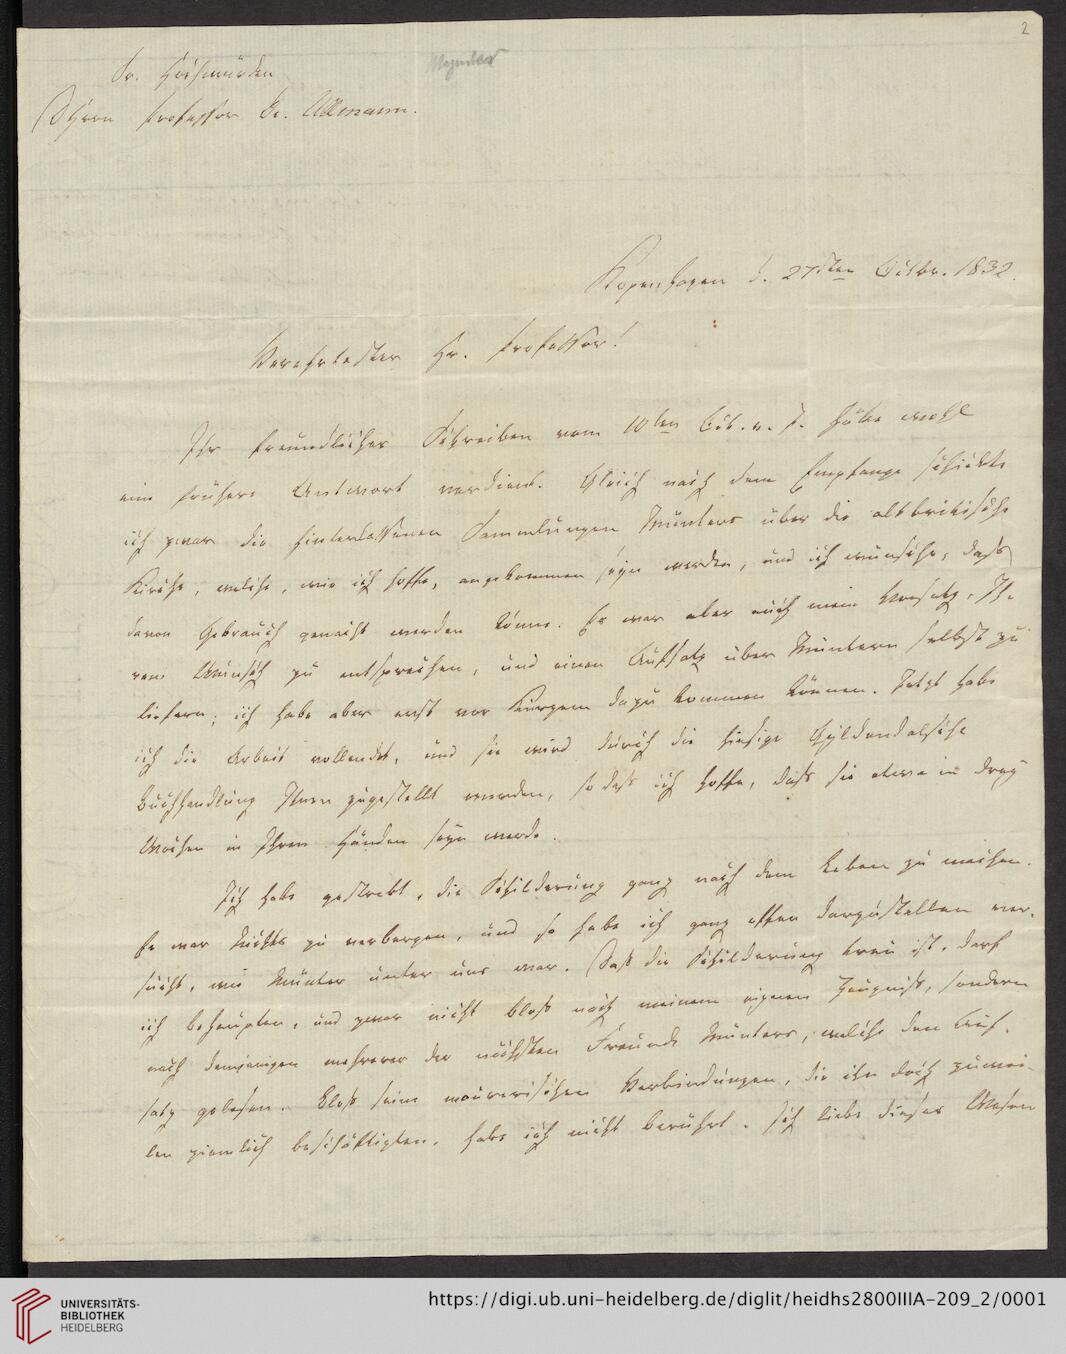 2
Sr. Hochwürden
Herrn Professor Dr. Ullmann.
Kopenhagen d. 27sten Octbr. 1832.
Verehrtester Hr. Professor!
Ihr freundliches Schreiben vom 10ten Oct. v. J. hätte wohl
eine frühere Antwort verdient. Gleich nach dem Empfange schickte
ich zwar die hinterlassenen Sammlungen Münters über die altbritische
Kirche, welche, wie ich hoffe, angekommen seyn werden, und ich wünsche, daß
davon Gebrauch gemacht werden könne. Es war aber auch mein Vorsatz, Ih-
rem Wunsch zu entsprechen, und einen Aufsatz über Müntern selbst zu
liefern; ich habe aber erst vor Kurzem dazu kommen können. Jetzt habe
ich die Arbeit vollendet, und sie wird durch die hiesige Gyldendalsche
Buchhandlung Ihnen zugestellt werden, so daß ich hoffe, daß sie etwa in drey
Wochen in Ihren Händen seyn werde.
Ich habe gestrebt, die Schilderung ganz nach dem Leben zu machen.
Es war Nichts zu verbergen, und so habe ich ganz offen darzustellen ver-
sucht, wie Münter unter uns war. Daß die Schilderung treu ist, darf
ich behaupten, und zwar nicht bloß nach meinem eigenen Zeugniß, sondern
nach demjenigen mehrerer der nächsten Freunde Münters, welche den Auf-
satz gelesen. Bloß seine maurerischen Verbindungen, die ihn doch zuwei-
len ziemlich beschäftigten, habe ich nicht berührt. Ich liebe dieses Wesen
UNIVERSITÄTS-
BIBLIOTHEK
HEIDELBERG
https://digi.ub.uni-heidelberg.de/diglit/heidhs2800IIIA-209_2/0001